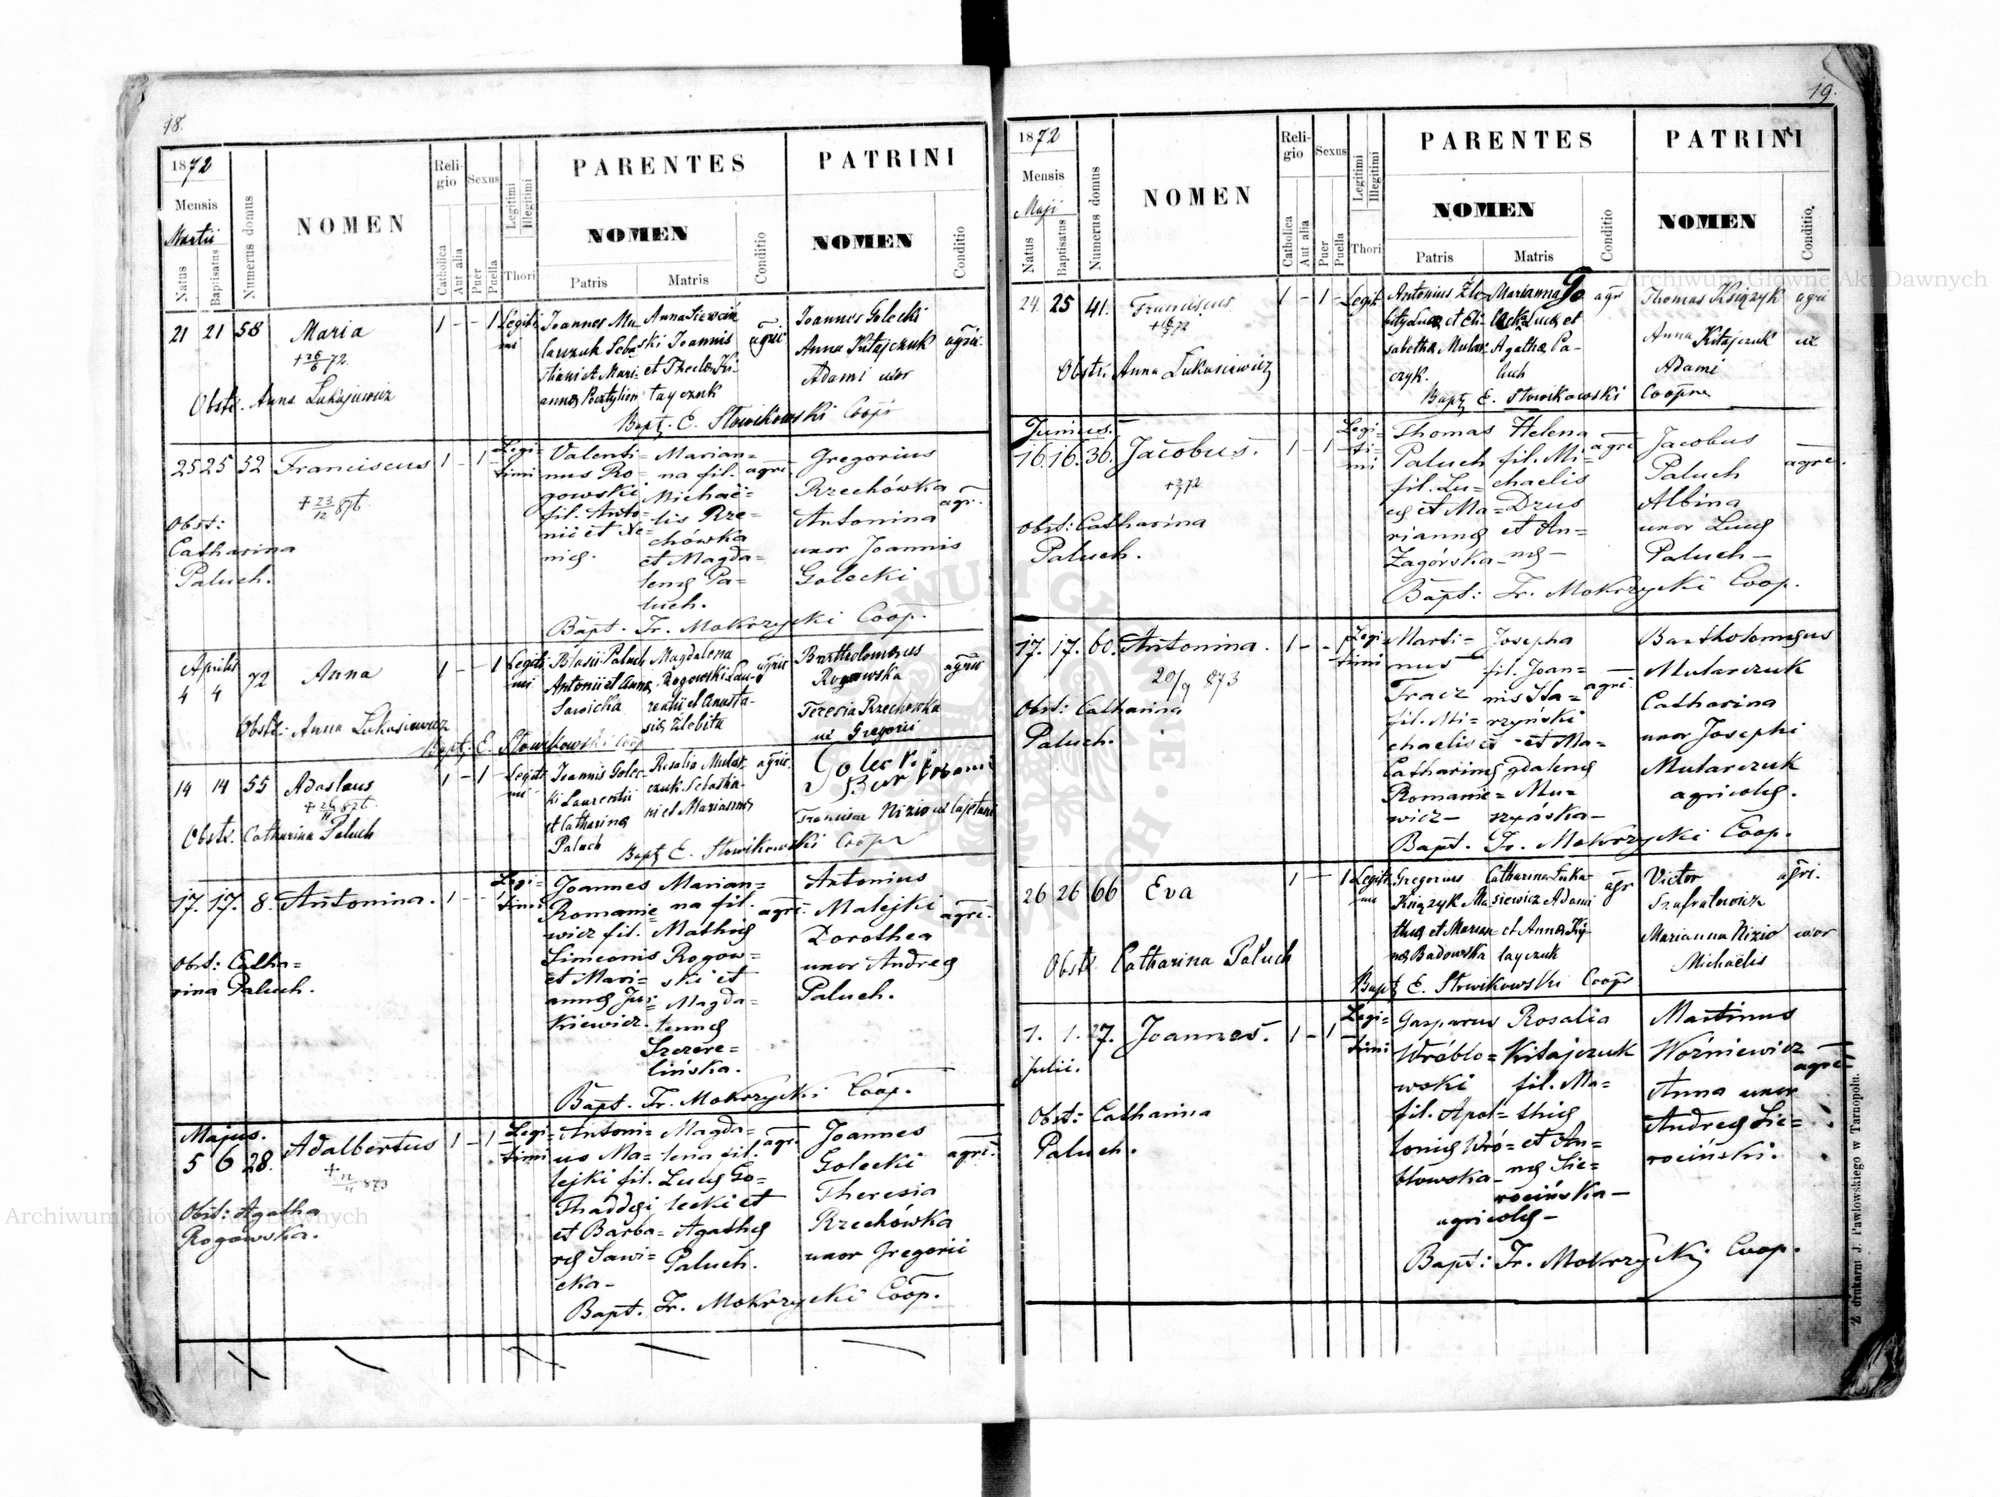 18.
1872
Mensis
Martii
Natus
Baptisatus
Numerus domus
NOMEN
Religio
Catholica
Aut alia
Sexus
Puer
Puella
Legitimi
Illegitimi
Thori
PARENTES
NOMEN
Patris
Matris
Conditio
PATRINI
NOMEN
Conditio
21 21 58 Maria 1 - - 1 Legiti
mi
+ 26/6 72.
Obstr. Anna Lukasiewicz
Joannes Mu-
larczuk Seba-
stiani et Mari-
annæ
Anna
ski Joannis
et Theclæ Ki-
tayczuk
agri.
Joannes Golecki
Anna Kitajczuk
Adami uxor
agri.
Bapt. E. Słowikowski Coopr
25 25 52 Franciscus 1 - 1 - Legi-
timi
+ 23/12 876.
Obst:
Catharina
Paluch.
Valenti=
nus Ro=
gowski
fil. Anto=
nii et Xe=
niæ.
Marian=
na fil.
Michaë=
lis Rze=
chówka
et Magda=
lenæ Pa=
luch.
agri.
Gregorius
Rzechówka
Antonina
uxor Joannis
Golecki
agri.
Bapt. Fr. Mokrzycki Coop.
Aprilis
4 4 72 Anna 1 - - 1 Legiti
mi
Obstr. Anna Lukasiewicz
Blasii Paluch
Antonii et Annæ
Sawicka
Magdalena
Rogowski Lau-
rentii et Anasta-
siæ Zlobita
agric
Bartholomeus
Rogowska
Teresia Rzechowka
ux Gregorii
agric
Bapt. E. Słowikowski Coop
14 14 55 1 - 1 - Legiti
mi
+ 26/11 876.
Obstr. Catharina Paluch
Joannis Golec-
ki Laurentii
et Catharina
Paluch
Rosalia Mular
czuk Sebastia-
ni et Mariannæ
agric.
Golecki
Franciscæ Nizio ux Cajetani
Bapt E. Słowikowski Coopr
17. 17. 8. Antonina. 1 - - 1 Legi=
timi
Obst: Catha=
rina Paluch.
Joannes
Romanie=
wicz fil.
Simeonis
et Mari=
annæ Jur=
kiewicz.
Marian=
na fil.
Mathiæ
Rogow=
ski et
Magda=
lennæ
lińska.
agri.
Antonius
Malejki
Dorothea
uxor Andreæ
Paluch.
agri.
Bapt. Fr. Mokrzycki Coop.
Majus.
5 6 28. Adalbertus 1 - 1 - Legi=
timi
+ 12/11 873
Obst: Agatha
Rogowska.
Antoni=
us Ma=
lejki fil.
Thaddæi
et Barba=
ræ Sawi=
cka-
Magda=
lena fil.
Lucæ Go=
lecki et
Agathæ
Paluch.
agri.
Joannes
Golecki
Theresia
Rzechówka
uxor Gregorii
agri.
Bapt. Fr. Mokrzycki Coop.
19.
1872
Mensis
Maji
Natus
Baptisatus
Numerus domus
NOMEN
Religio
Catholica
Aut alia
Sexus
Puer
Puella
Legitimi
Illegitimi
Thori
PARENTES
NOMEN
Patris
Matris
Conditio
PATRINI
NOMEN
Conditio
24. 25 41. Franciscus 1 - 1 - Legit
Obstr. Anna Lukasiewicz
Antonius Zło-
bity Lucæ et Eli-
sabethæ Mular
czyk.
Marianna Go
leck Lucæ et
Agathæ Pa-
luch
agr
Thomas Książyk
Anna Kitajczuk
Adami
agri
ux
Bapt E. Słowikowski Coopre
Junius.
16. 16. 36. Jacobus. 1 - 1 - Legi-
ti-
mi
Obst: Catharina
Paluch.
Thomas
Paluch
fil. Lu=
cæ et Ma=
riannæ
Zagórska-
Helena
fil. Mi=
chaelis
Drus
et An=
næ-
agri
Jacobus
Paluch
Albina
uxor Lucæ
Paluch-
agri.
Bapt: Fr. Mokrzycki Coop.
17. 17. 60. Antonina. 1 - - 1 Legi-
timi
20/9 873
Obst: Catharina
Paluch.
Marti=
nus
Tracz
fil. Mi=
chaelis et
Catharinæ
Romanie=
wicz-
Josepha
fil. Joan=
nis
et Ma=
gdalenæ
Mu=
agri.
Bartholomæus
Mularczuk
Catharina
uxor Josephi
Mularczuk
agricolæ.
Bapt. Fr. Mokrzycki Coop.
26 26 66 Eva 1 - - 1 Legiti
mi
Obstr Catharina Paluch
Gregorius
Książyk Ma
thiæ et Marian-
næ Badowska
Catharina Luka-
siewicz Adami
et Annæ Ki-
tayczuk
agr
Victor
Szafratowicz
Marianna Nizio uxor
Michaëlis
agri.
Bapt E. Słowikowski Coopr
1. 1. 27. Joannes. 1 - 1 - Legi=
timi
Julii.
Obst: Catharina
Paluch.
Gasparus
Wróblo=
wski
fil. Apol=
loniæ Wró=
blowska-
Rosalia
Kitajczuk
fil. Ma=
thiæ
et An=
næ Sie=
rocińska-
agricolæ-
Martinus
Woźniewicz
Anna uxor
Andreæ Sie=
rociński.
agri
Bapt: Fr. Mokrzycki Coop.
Z drukarni J. Pawłowskiego w Tarnopolu.
Archiwum Główne Akt Dawnych
Archiwum Główne Akt Dawnych